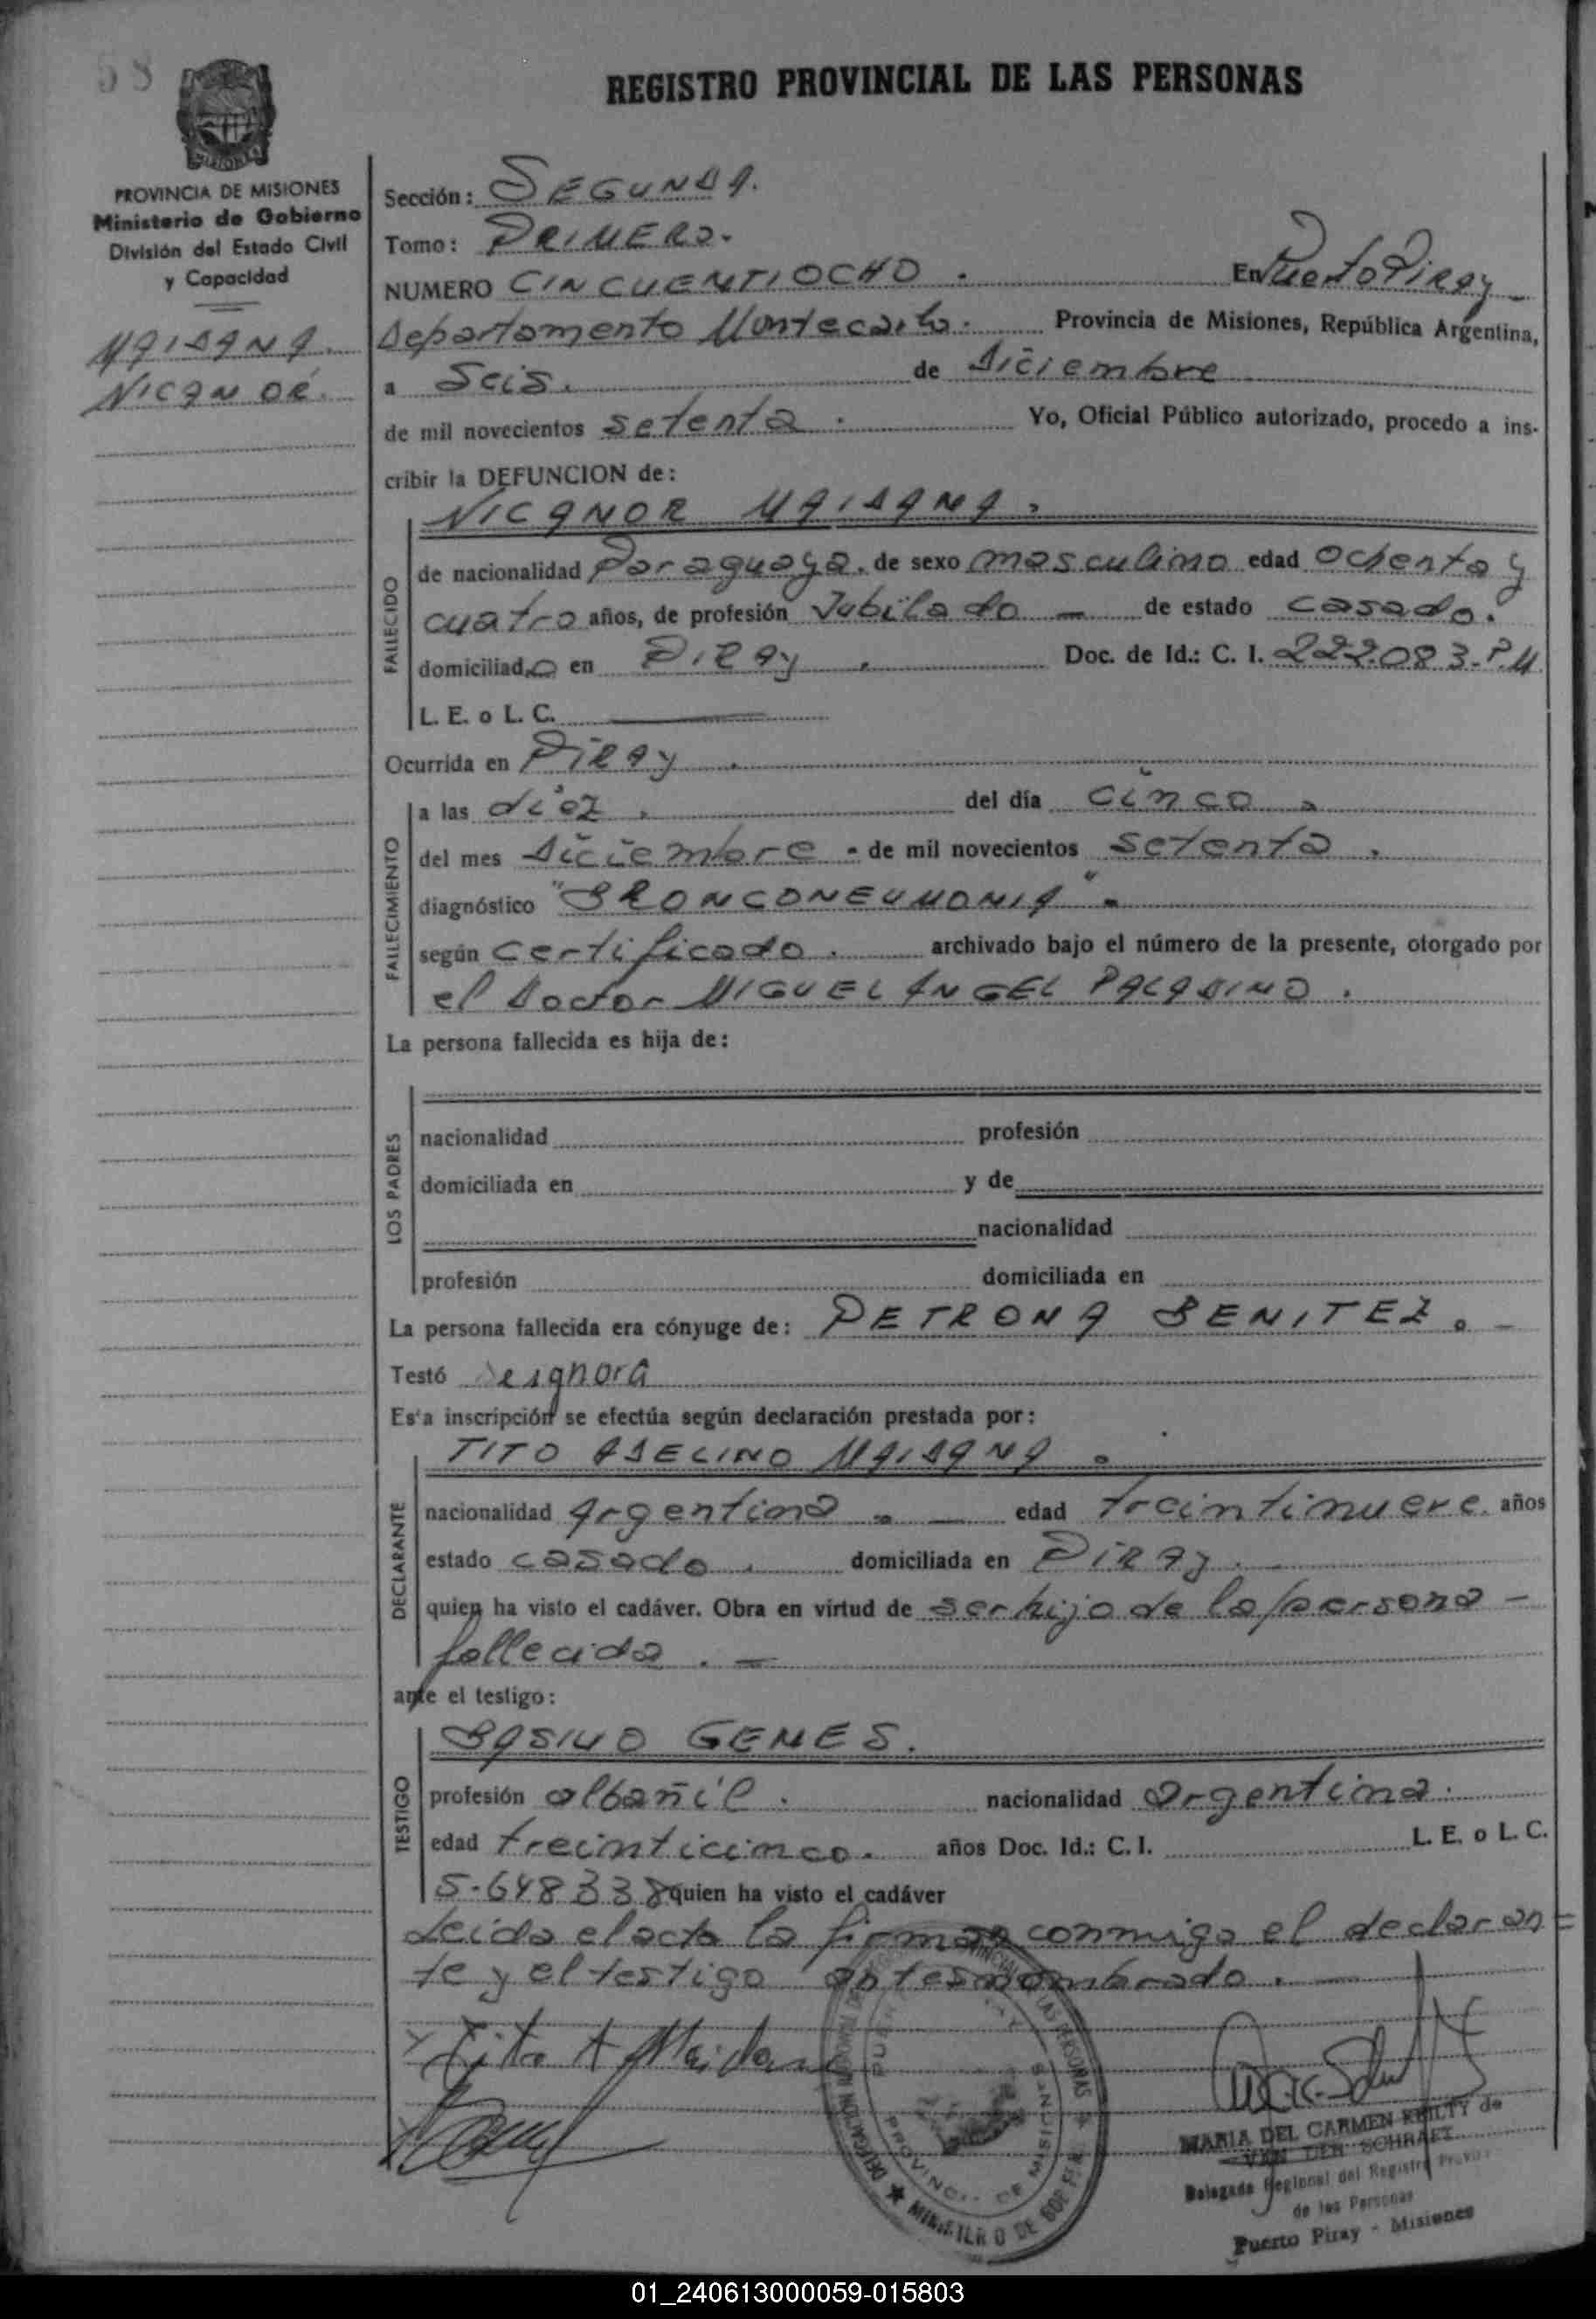 58
REGISTRO PROVINCIAL DE LAS PERSONAS
PROVINCIA DE MISIONES
Ministerio de Gobierno
División del Estado Civil
y Capacidad
MAIDANA.
NICANOR.
Sección: SEGUNDA.
Tomo: PRIMERO.
NUMERO CINCUENTIOCHO. En Puerto Piray
Departamento Montecarlo. Provincia de Misiones, República Argentina,
a Seis. de Diciembre
de mil novecientos setenta. Yo, Oficial Público autorizado, procedo a ins-
cribir la DEFUNCION de:
NICANOR MAIDANA.
FALLECIDO
de nacionalidad Paraguaya. de sexo masculino edad ochenta y
cuatro años, de profesión Jubilado — de estado casado.
domiciliado en PIRAY. Doc. de Id.: C. I. 222.083.P.M.
L. E. o L. C. —
Ocurrida en PIRAY.
FALLECIMIENTO
a las diez. del día cinco.
del mes Diciembre - de mil novecientos setenta.
diagnóstico "BRONCONEUMONIA".
según certificado. archivado bajo el número de la presente, otorgado por
el Doctor MIGUEL ANGEL PALADINO.
La persona fallecida es hija de:
LOS PADRES
nacionalidad profesión
domiciliada en y de
nacionalidad
profesión domiciliada en
La persona fallecida era cónyuge de: PETRONA BENITEZ. -
Testó se ignora
Esta inscripción se efectúa según declaración prestada por:
TITO ASELINO MAIDANA.
DECLARANTE
nacionalidad Argentina. — edad treintinueve. años
estado casado. domiciliada en PIRAY.
quien ha visto el cadáver. Obra en virtud de ser hijo de la persona -
fallecida. -
ante el testigo:
TESTIGO
BASILIO GEMES.
profesión albañil. nacionalidad argentina.
edad treinticinco. años Doc. Id.: C. I. L. E. o L. C.
5.648338 quien ha visto el cadáver
Leida el acta la firman conmigo el declaran=
te y el testigo antesnombrado. —
Tito A Maidana
MARIA DEL CARMEN REILTY de
VAN DER SCHRAFT
Delegada Regional del Registro Provin
de las Personas
Puerto Piray - Misiones
PROVINCIA DE MISIONES
★ MINISTERIO DE GOB
01_240613000059-015803